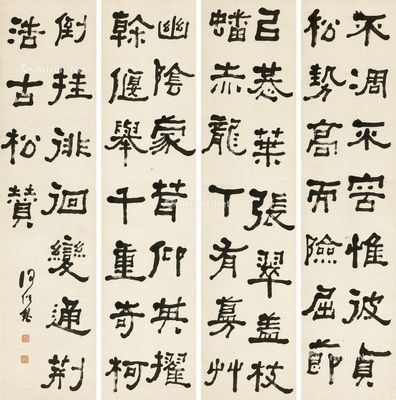 不凋不容惟彼貞
松勢高而險屈節
已恭葉張翠蓋枝
蟠赤龍丅有蔓艸
幽陰蒙茸仰其擢
榦偃舉千重奇柯
倒挂徘徊變通荆
浩古松贊
何紹基